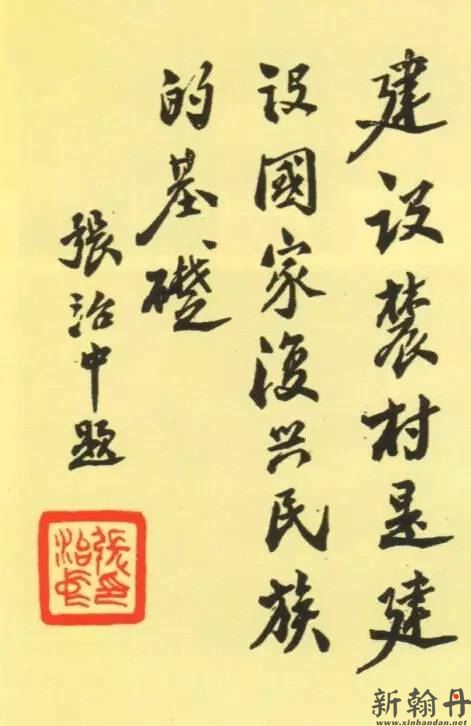 建设農村是建
设國家復兴民族
的基礎
張治中題
張印
治中
新翰丹
www.xinhandan.net